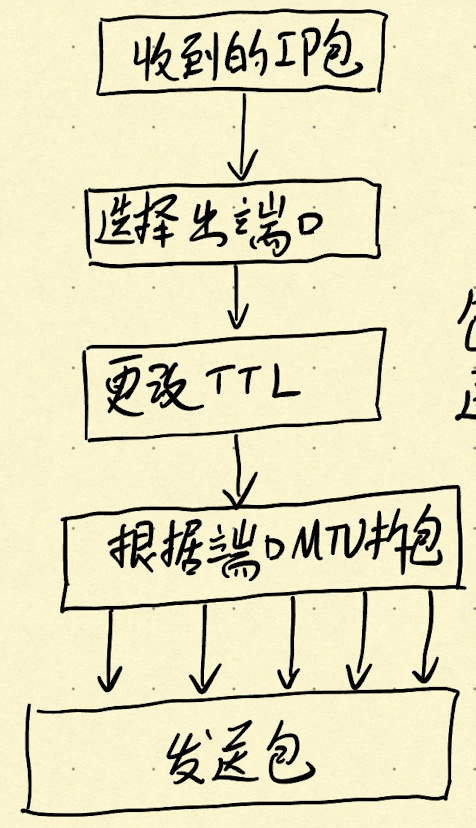 收到的IP包
选择出端口
更改TTL
根据端口MTU拆包
发送包